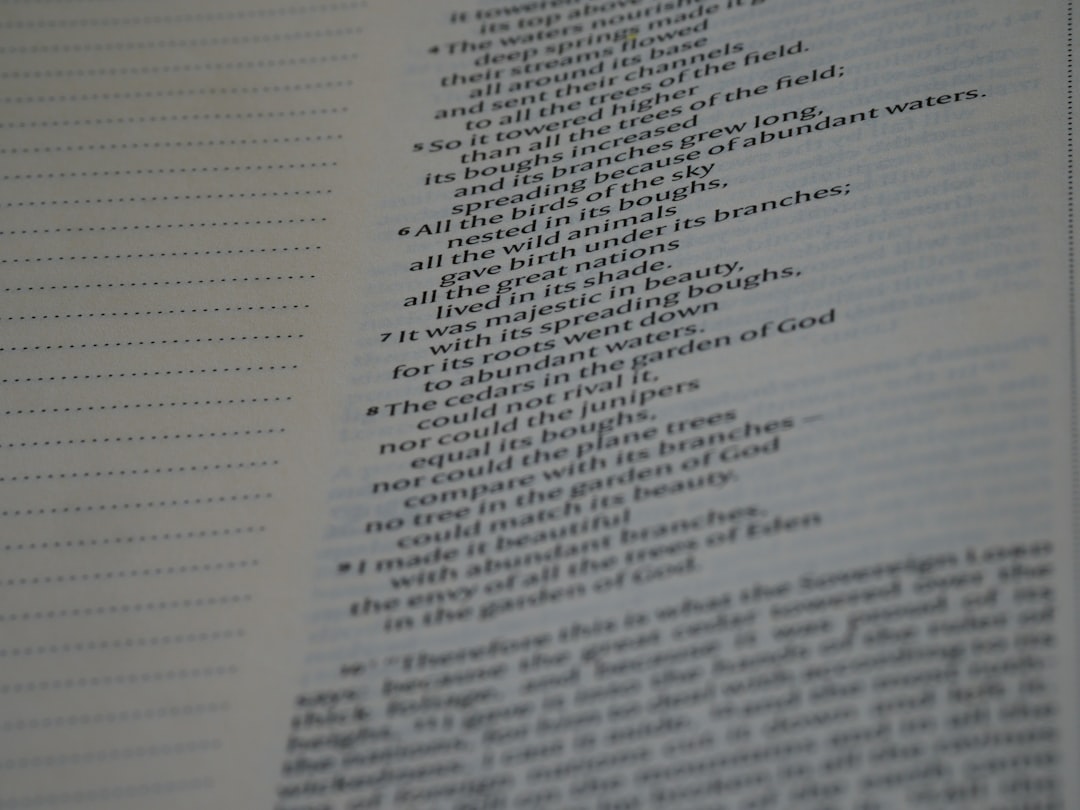 it towered
its top above
4 The waters nourish
deep springs made it g
their streams flowed
all around its base
and sent their channels
to all the trees of the field.
5 So it towered higher
than all the trees of the field;
its boughs increased
and its branches grew long,
spreading because of abundant waters.
6 All the birds of the sky
nested in its boughs,
all the wild animals
gave birth under its branches;
all the great nations
lived in its shade.
7 It was majestic in beauty,
with its spreading boughs,
for its roots went down
to abundant waters.
8 The cedars in the garden of God
could not rival it,
nor could the junipers
equal its boughs,
nor could the plane trees
compare with its branches —
no tree in the garden of God
could match its beauty.
9 I made it beautiful
with abundant branches,
the envy of all the trees of Eden
in the garden of God.
10 "Therefore this is what the Sovereign LORD
says: because the great cedar towered over the
thick foliage, and because it was proud of its
height, 11 I gave it into the hands of the ruler of
the nations, for him to deal with according to its
wickedness. I cast it aside,